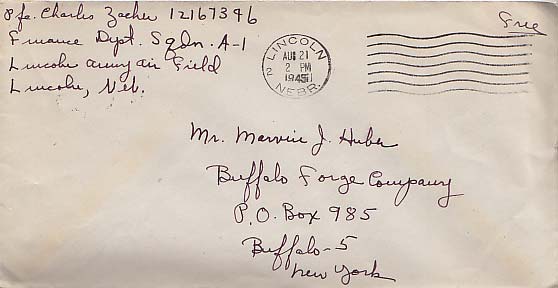 Pfc. Charles Zacher 12167396
Finance Dept. Sqdn. A-1
Lincoln Army Air Field
Lincoln, Neb.
Free
LINCOLN
2
AUG 21
2 PM
1945
NEBR.
Mr. Marvin J. Huber
Buffalo Forge Company
P.O. Box 985
Buffalo-5
New York